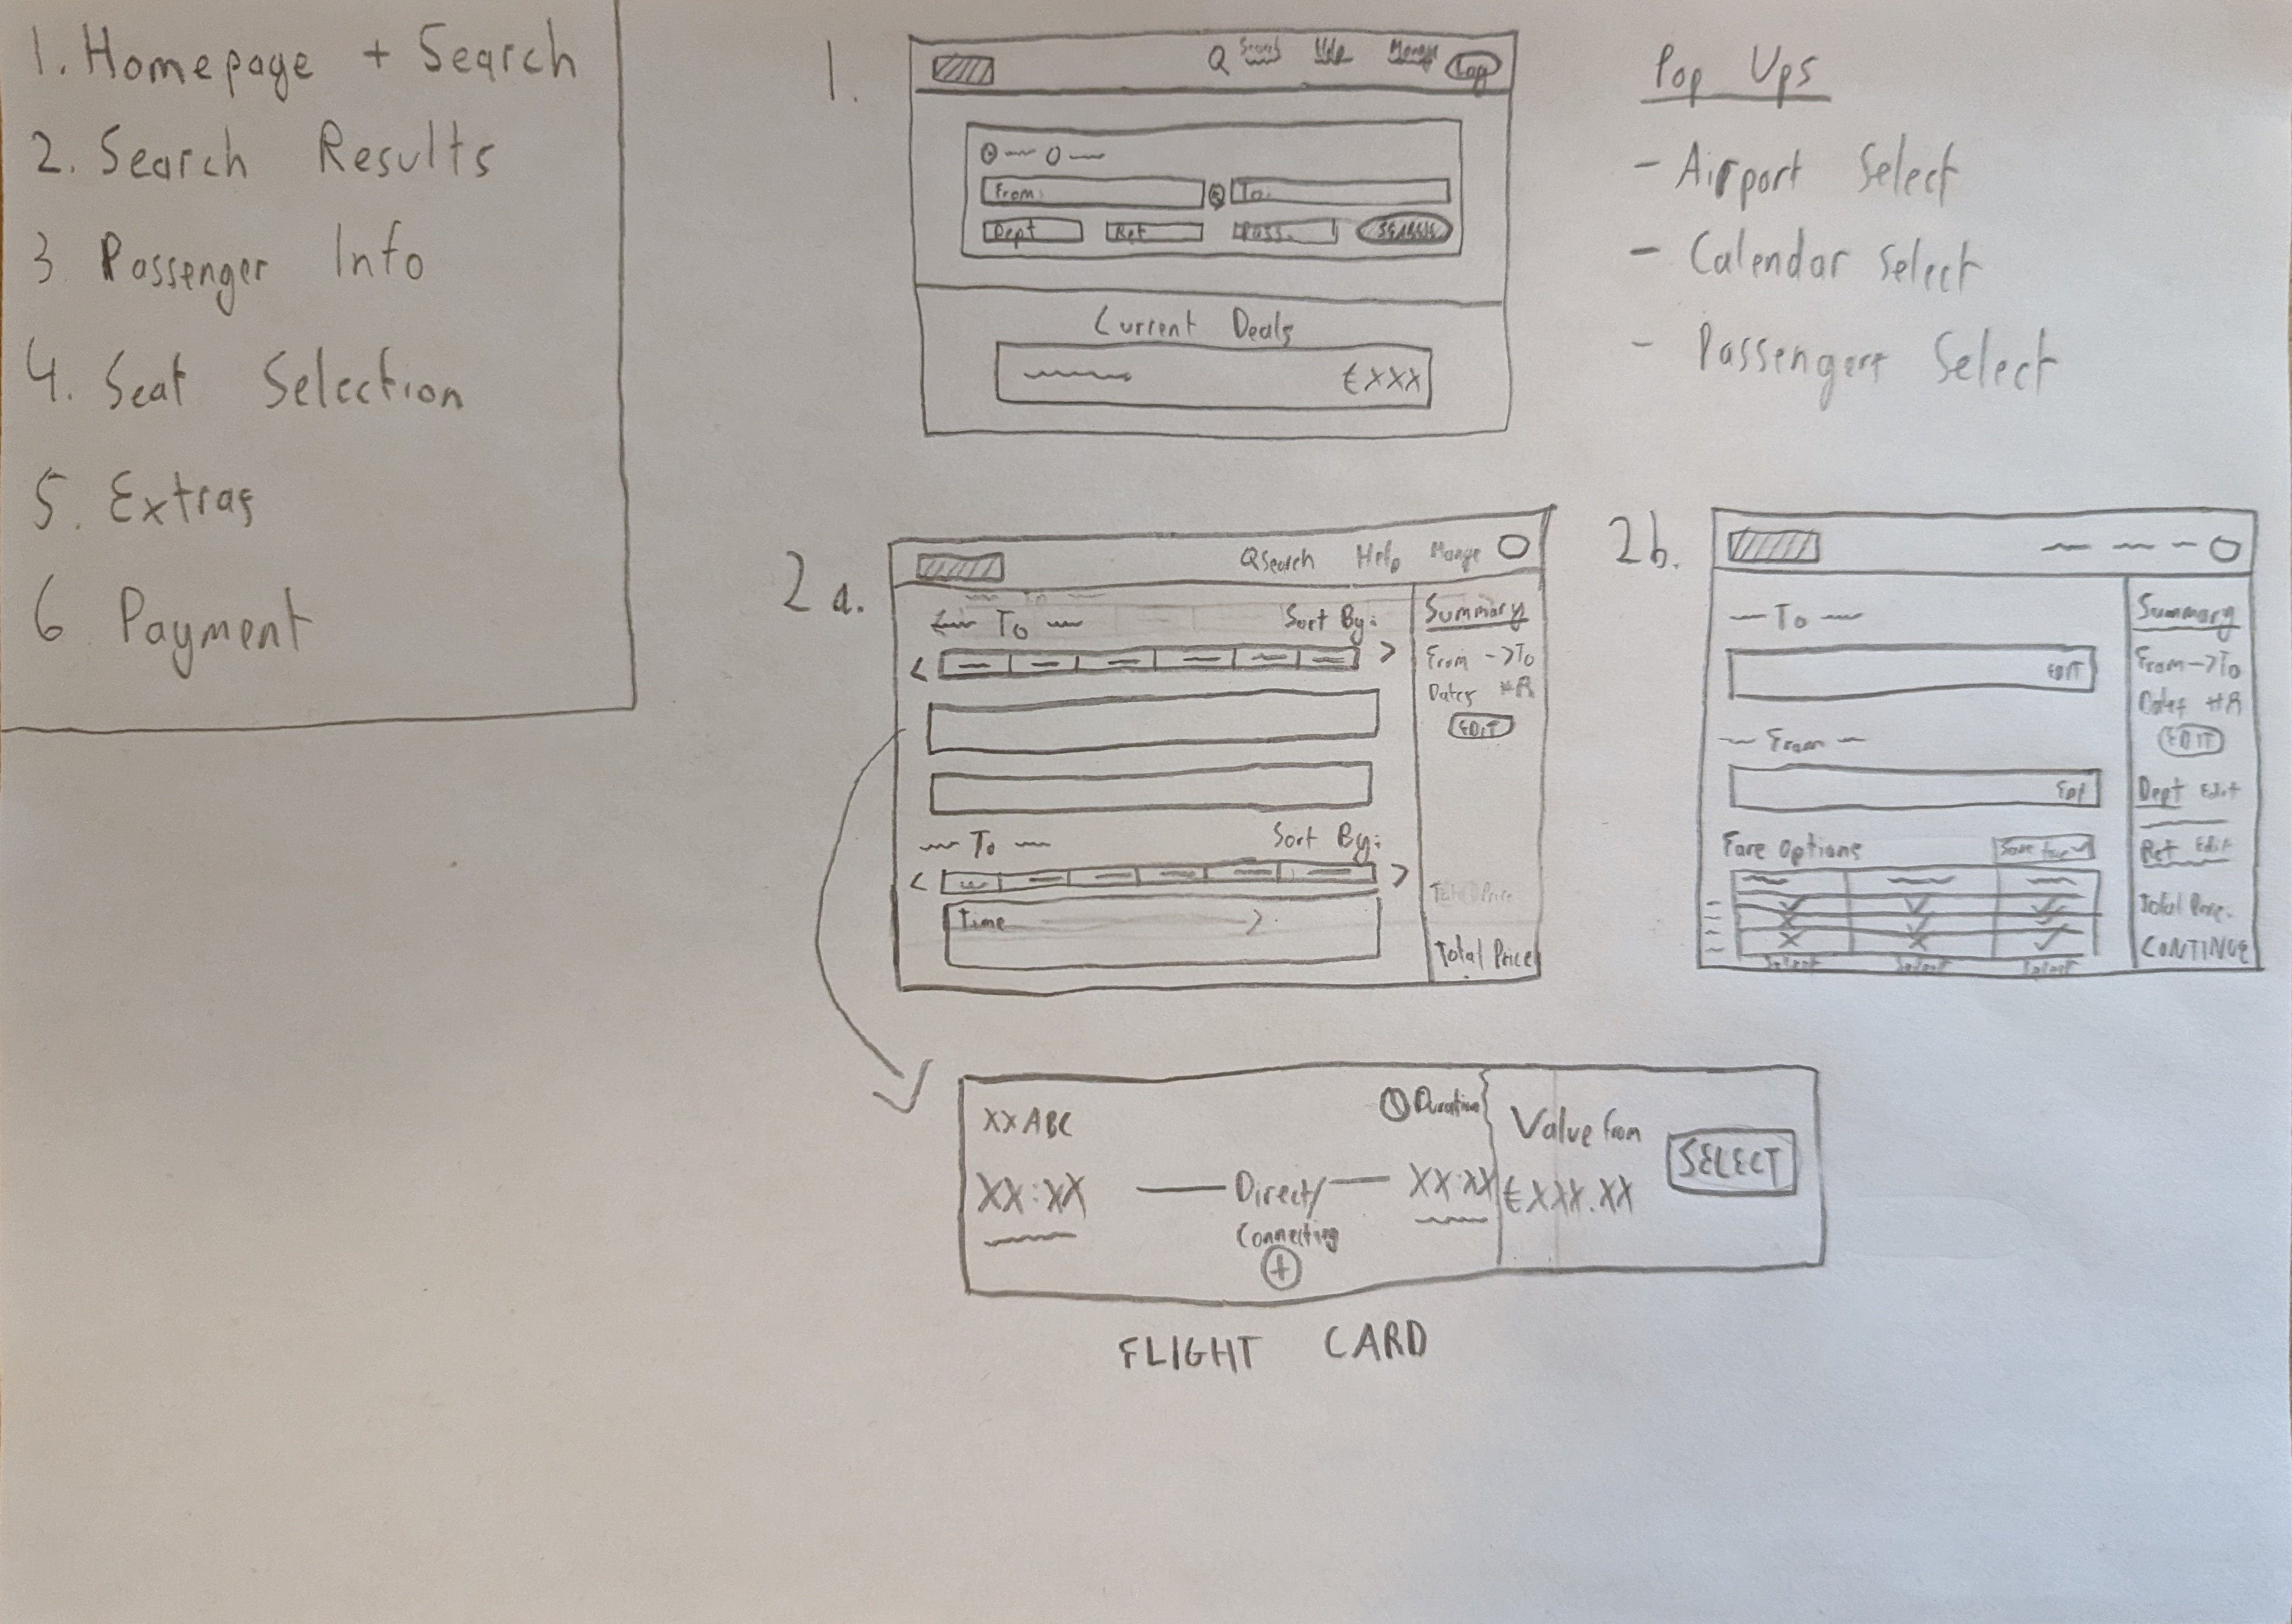 1. Homepage + Search
2. Search Results
3 Passenger Info
4. Seat Selection
5. Extras
6 Payment
1.
Q Search Help Manage Log
From:
To:
Dept Ret Pass. SEARCH
Current Deals
€XXX
Pop Ups
- Airport Select
- Calendar Select
- Passenger Select
2a.
QSearch Help Mange
To Sort By:
< >
To Sort By:
< >
Time
Summary
From ->To
Dates #R
EDIT
Total Price
Total Price
2b.
To
EDIT
From
Edit
Fare Options
Select Select Select
Summary
From ->To
Dates #R
EDIT
Dept Edit
Ret Edit
Total
CONTINUE
XXABC
Duration
XX:XX
Direct/
Connecting
+
XX:XX
Value from
€XXX.XX
SELECT
FLIGHT CARD